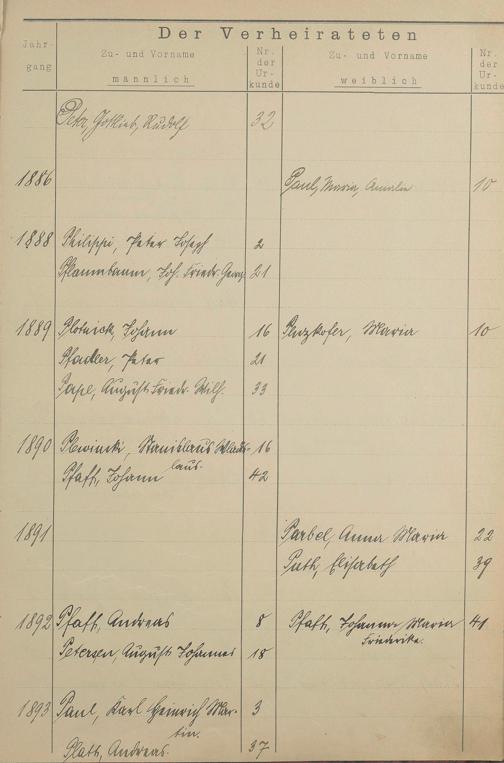 Der Verheirateten
Jahr-
gang
Zu- und Vorname
männlich
Nr.
der
Ur-
kunde
Zu- und Vorname
weiblich
Nr.
der
Ur-
kunde
Petr, Gottlieb, Rudolf 32
1886 Paul, Maria, Amalie 10
1888 Philippi, Peter Joseph 2
Pflaumbaum, Joh. Friedr. Georg 21
1889 Plotnick, Johann 16 Penzkofer, Maria 10
Pfadler, Peter 21
Papl, August Friedr. Wilh. 33
1890 Plewincki, Stanislaus Wladis- 16
laus.
Pfaff, Johann 42
1891 Parbel, Anna Maria 22
Puth, Elisabeth 39
1892 Pfaff, Andreas 8 Pfaff, Johanna Maria 41
Friederike.
Petersen, August Johannes 18
1893 Paul, Karl Heinrich Mar- 3
tin.
Plath, Andreas. 37